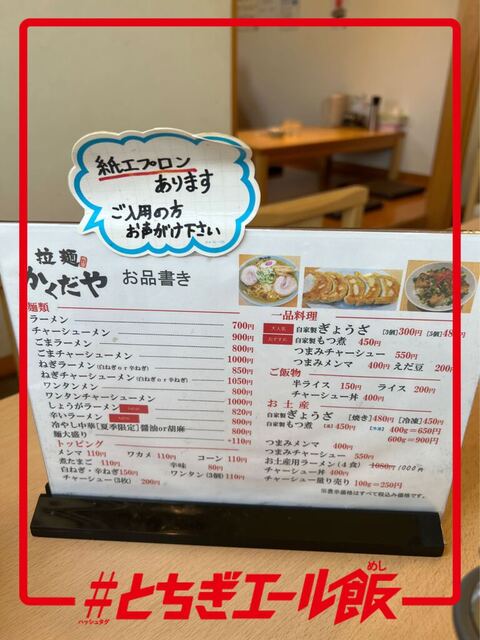 紙エプロン
あります
ご入用の方
お声がけ下さい
拉麺
かくだや
お品書き
麺類
ラーメン 700円
チャーシューメン 900円
ごまラーメン 800円
ごまチャーシューメン 1000円
ねぎラーメン(白ねぎor辛ねぎ) 850円
ねぎチャーシューメン(白ねぎor辛ねぎ) 1050円
ワンタンメン 800円
ワンタンチャーシューメン 1000円
しょうがラーメン 800円
辛いラーメン 800円
冷やし中華[夏季限定]醤油or胡麻 800円
麺大盛り +110円
トッピング
メンマ 110円 ワカメ 110円 コーン 110円
煮たまご 110円 辛味 80円
白ねぎ・辛ねぎ150円 ワンタン(3個)110円
チャーシュー(3枚) 200円
一品料理
大人気 自家製ぎょうざ [3個]300円 [5個]480円
おすすめ 自家製もつ煮 450円
つまみチャーシュー 550円
つまみメンマ 400円 えだ豆 200円
ご飯物
半ライス 150円 ライス 200円
チャーシュー丼 400円
お土産
自家製ぎょうざ [焼き]480円 [冷凍]450円
自家製もつ煮 [凍]450円 [冷凍] 400g=650円
600g=900円
つまみメンマ 400円
つまみチャーシュー 550円
お土産用ラーメン(4食) 1080円 1000円
チャーシュー丼 400円
チャーシュー量り売り 100g=250円
※表示価格はすべて税込み価格です。
#とちぎエール飯
ハッシュタグ
めし